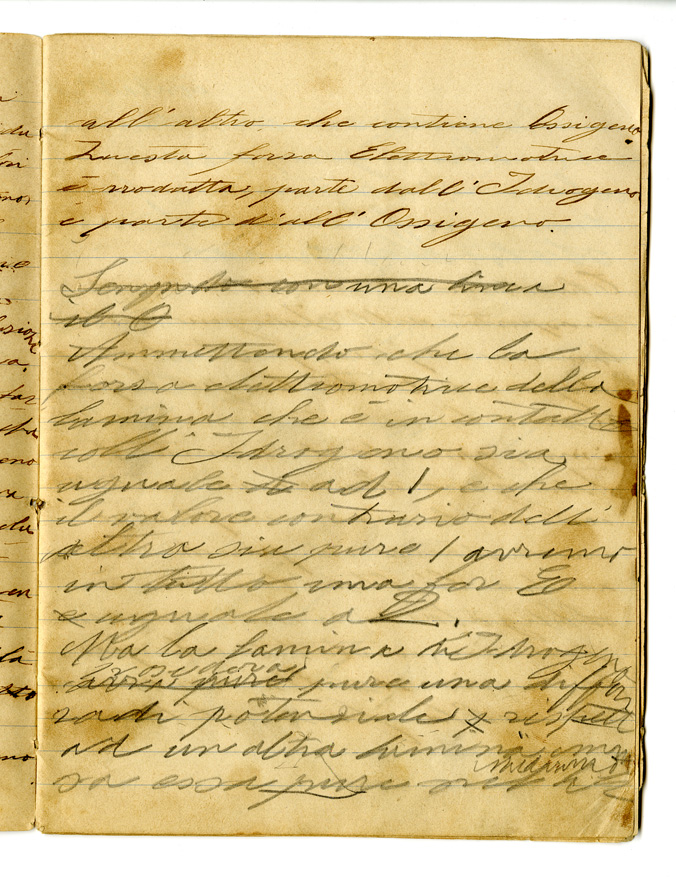 all' altro, che contiene Ossigeno
Questa forza Elettromotrice
è prodotta, parte dall' Idrogeno
e parte d'all' Ossigeno.
con una linea
il O
Ammettendo che la
forsa elettromotrice della
lamina che è in contatto
coll' Idrogeno sia
uguale ad 1, e che
il valore contrario dell'
altra sia pure 1 avremo
in tutto una for E
uguale a 2.
Ma la lamina Idrogen
possedera
pure pure una differ
za di potenziale rispett
ad un altra lamina imer
sa essa pure